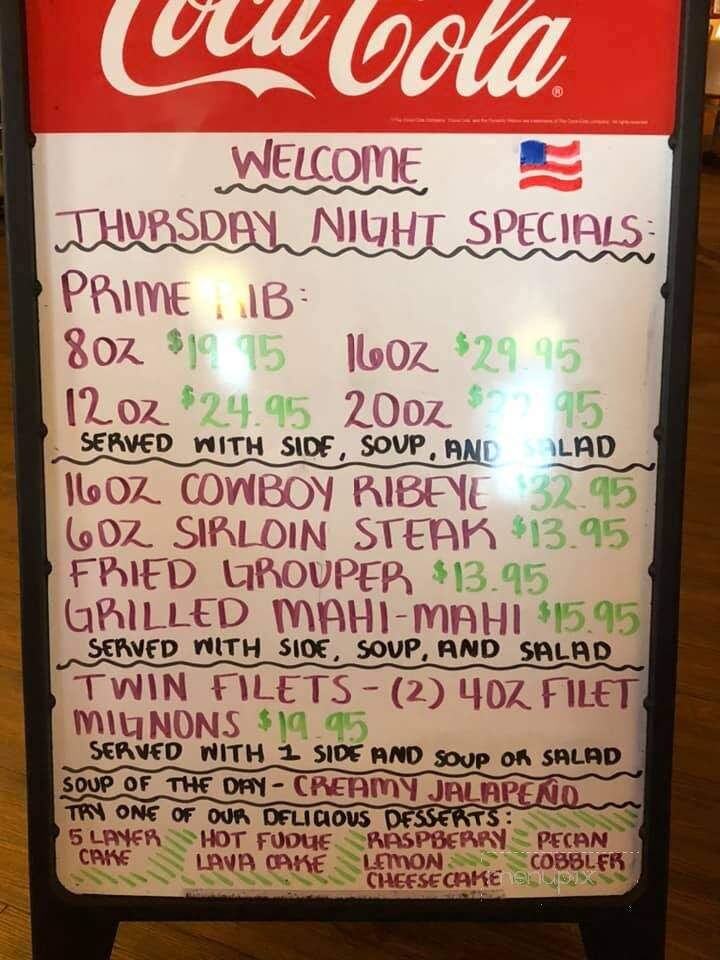 Coca-Cola
WELCOME
THURSDAY NIGHT SPECIALS:
PRIME RIB:
8OZ $19.95 16OZ $29.95
12OZ $24.95 20OZ
SERVED WITH SIDE, SOUP, AND SALAD
16OZ COWBOY RIBEYE $32.95
6OZ SIRLOIN STEAK $13.95
FRIED GROUPER $13.95
GRILLED MAHI-MAHI $15.95
SERVED WITH SIDE, SOUP, AND SALAD
TWIN FILETS - (2) 4OZ FILET
MIGNONS $19.95
SERVED WITH 1 SIDE AND SOUP OR SALAD
SOUP OF THE DAY - CREAMY JALAPEÑO
TRY ONE OF OUR DELICIOUS DESSERTS:
5 LAYER HOT FUDGE RASPBERRY PECAN
CAKE LAVA CAKE LEMON COBBLER
CHEESECAKE menupix